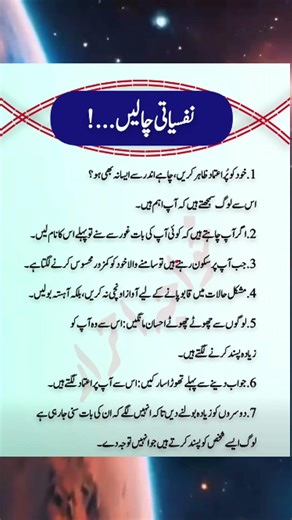 نفسیاتی چالیں...!
1. خود کو پُر اعتماد ظاہر کریں، چاہے اندر سے ایسا نہ بھی ہو؟
اس سے لوگ سمجھتے ہیں کہ آپ اہم ہیں۔
2. اگر آپ چاہتے ہیں کہ کوئی آپ کی بات غور سے سنے تو پہلے اس کا نام لیں۔
3. جب آپ پر سکون رہتے ہیں تو سامنے والا خود کو کمزور محسوس کرنے لگتا ہے۔
4. مشکل حالات میں قابو پانے کے لیے آواز اونچی نہ کریں، بلکہ آہستہ بولیں۔
5. لوگوں سے چھوٹے چھوٹے احسان مانگیں: اس سے وہ آپ کو
زیادہ پسند کرنے لگتے ہیں۔
6. جواب دینے سے پہلے تھوڑا سا رکیں: اس سے آپ پر اعتماد لگتے ہیں۔
7. دوسروں کو زیادہ بولنے دیں تاکہ انہیں لگے کہ ان کی بات سنی جا رہی ہے
لوگ ایسے شخص کو پسند کرتے ہیں جو انہیں توجہ دے۔